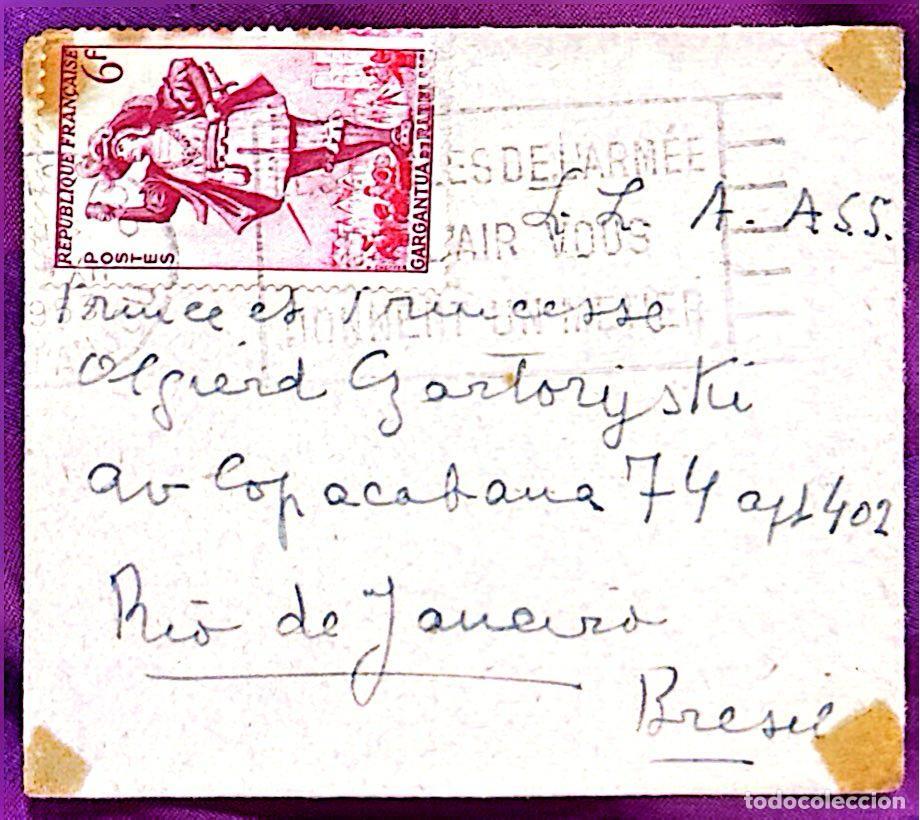 REPUBLIQUE FRANÇAISE
6F
POSTES
GARGANTUA
DE L'ARMÉE
L'AIR VOUS
DONNENT UN METIER
L.L. A.A.S.S.
Prince et Princesse
Olgierd Czartoryski
av Copacabana 74 apt 402
Rio de Janeiro
Brésil
todocoleccion